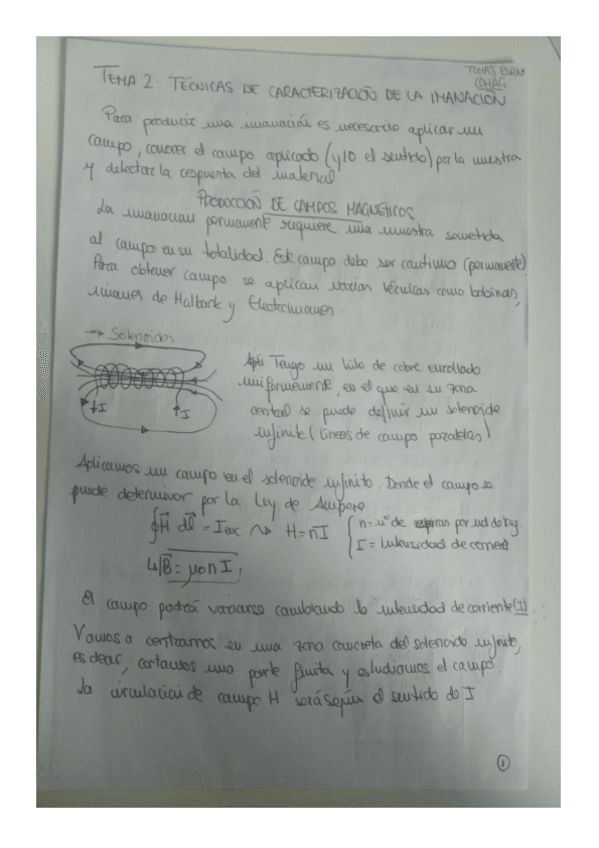 TEMA 2. TÉCNICAS DE CARACTERIZACIÓN DE LA IMANACIÓN
Para producir una imanación es necesario aplicar un
campo, conocer el campo aplicado (y/o el sentido) por la muestra
y detectar la respuesta del material
PRODUCCIÓN DE CAMPOS MAGNÉTICOS
La imanacian permanente requiere una muestra sometida
al campo en su totalidad. Este campo debe ser continuo (permanente)
Para obtener campo se aplican varias técnicas como bobinas,
imanes de Halback y Electroimanes
→ Solenoides
Tengo un hilo de cobre enrollado
uniformemente, en el que en su zona
central se puede definir un solenoide
infinito (líneas de campo paralelas)
↓I
↑I
Aplicamos un campo en el solenoide infinito. Donde el campo se
puede determinar por la Ley de Ampere
∮H⃗ dl⃗ = Iex ⇝ H = nI { n = nº de espiras por ud de long.
I = Intensidad de corriente
↳ B = μ0nI
El campo podrá variarse cambiando la intensidad de corriente (I)
Vamos a centrarnos en una zona concreta del solenoide infinito,
es decir, cortamos una parte finita y estudiamos el campo.
La circulación de campo H será según el sentido de I
1